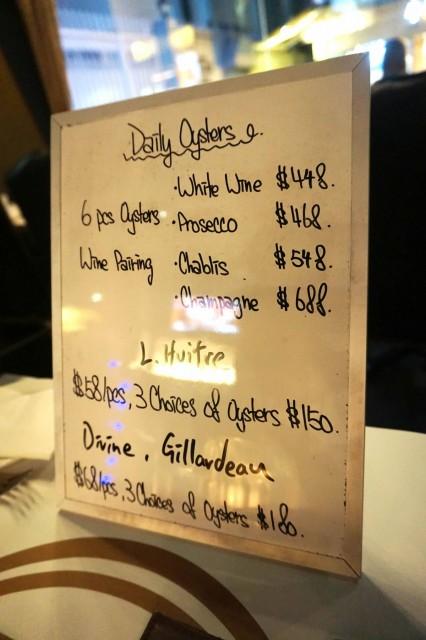 Daily Oysters
· White Wine $448.
6 pcs Oysters · Prosecco $468.
Wine Pairing · Chablis $548.
· Champagne $688.
L. Huitre
$58/pcs, 3 Choices of Oysters $150.
Divine, Gillardeau
$68/pcs, 3 Choices of Oysters $180.